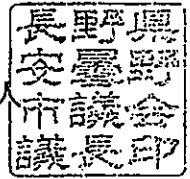 長野県
安曇野
市議会
議長印